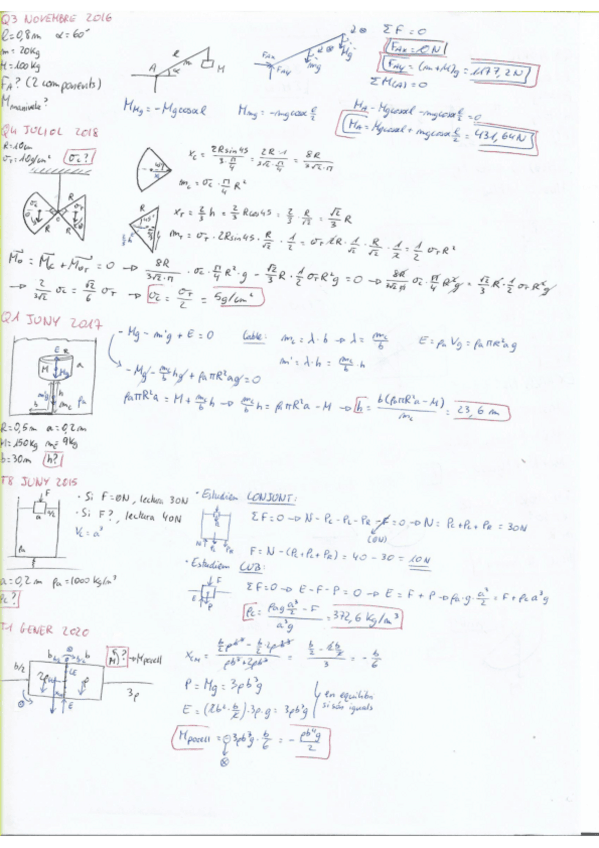 Q3 NOVEMBRE 2016
l=0,8m α=60°
m=20kg
M=100kg
F_A? (2 components)
M_manivela?
ΣF=0
F_Ax=0N
F_Ay=(m+M)g=1177,2N
ΣM(A)=0
M_Mg=-Mgcosαl
M_mg=-mgcosα l/2
M_A-Mgcosαl-mgcosα l/2=0
M_A=Mgcosαl+mgcosα l/2=431,64N
Q4 JULIOL 2018
R=10cm
σ_T=10g/cm² σ_c?
x_c=2Rsin45/(3·π/4)=2R·1/(3√2·π/4)=8R/(3√2·π)
m_c=σ_c·π/4 R²
x_T=2/3 h=2/3 Rcos45=2/3·R/√2=√2/3 R
m_T=σ_T·2Rsin45·R/√2·1/2=σ_T·2R·1/√2·R/√2·1/2=1/2 σ_T R²
M_O=M_c+M_OT=0 → 8R/(3√2·π)·σ_c·π/4 R²·g-√2/3 R·1/2 σ_T R²g=0 → 8R/(3√2π) σ_c π/4 R²g=√2/3 R·1/2 σ_T R²g
→ 2/(3√2) σ_c=√2/6 σ_T → σ_c=σ_T/2=5g/cm²
Q1 JUNY 2017
-Mg-m'g+E=0 Cable: m_c=λ·b → λ=m_c/b E=ρ_a Vg=ρ_a πR²ag
m'=λ·h=m_c/b·h
-Mg-m_c/b hg+ρ_a πR²ag=0
ρ_a πR²a=M+m_c/b h → m_c/b h=ρ_a πR²a-M → h=b(ρ_a πR²a-M)/m_c=23,6m
R=0,5m a=0,2m
M=150kg m_c=9kg
b=30m h?
T8 JUNY 2015
· Si F=0N, lectura 30N
· Si F?, lectura 40N
V_c=a³
· Estudiem CONJUNT:
ΣF=0 → N-P_L-P_C-P_R-F=0 → N=P_L+P_C+P_R=30N
(0N)
F=N-(P_L+P_C+P_R)=40-30=10N
· Estudiem CUB:
ΣF=0 → E-F-P=0 → E=F+P → ρ_a·g·a³/2=F+ρ_c a³g
ρ_c=(ρ_a g a³/2-F)/(a³g)=372,6kg/m³
a=0,2m ρ_a=1000kg/m³
ρ_c?
T1 GENER 2020
M? → M_parell
3ρ
x_CM=(b/2 ρb³-b/2 2ρb³)/(ρb³+2ρb³)=(b/2-2b/2)/3=-b/6
P=Mg=3ρb³g
E=(2b²·b/2)·3ρ·g=3ρb³g
en equilibri
si són iguals
M_parell=-3ρb³g·b/6=-ρb⁴g/2